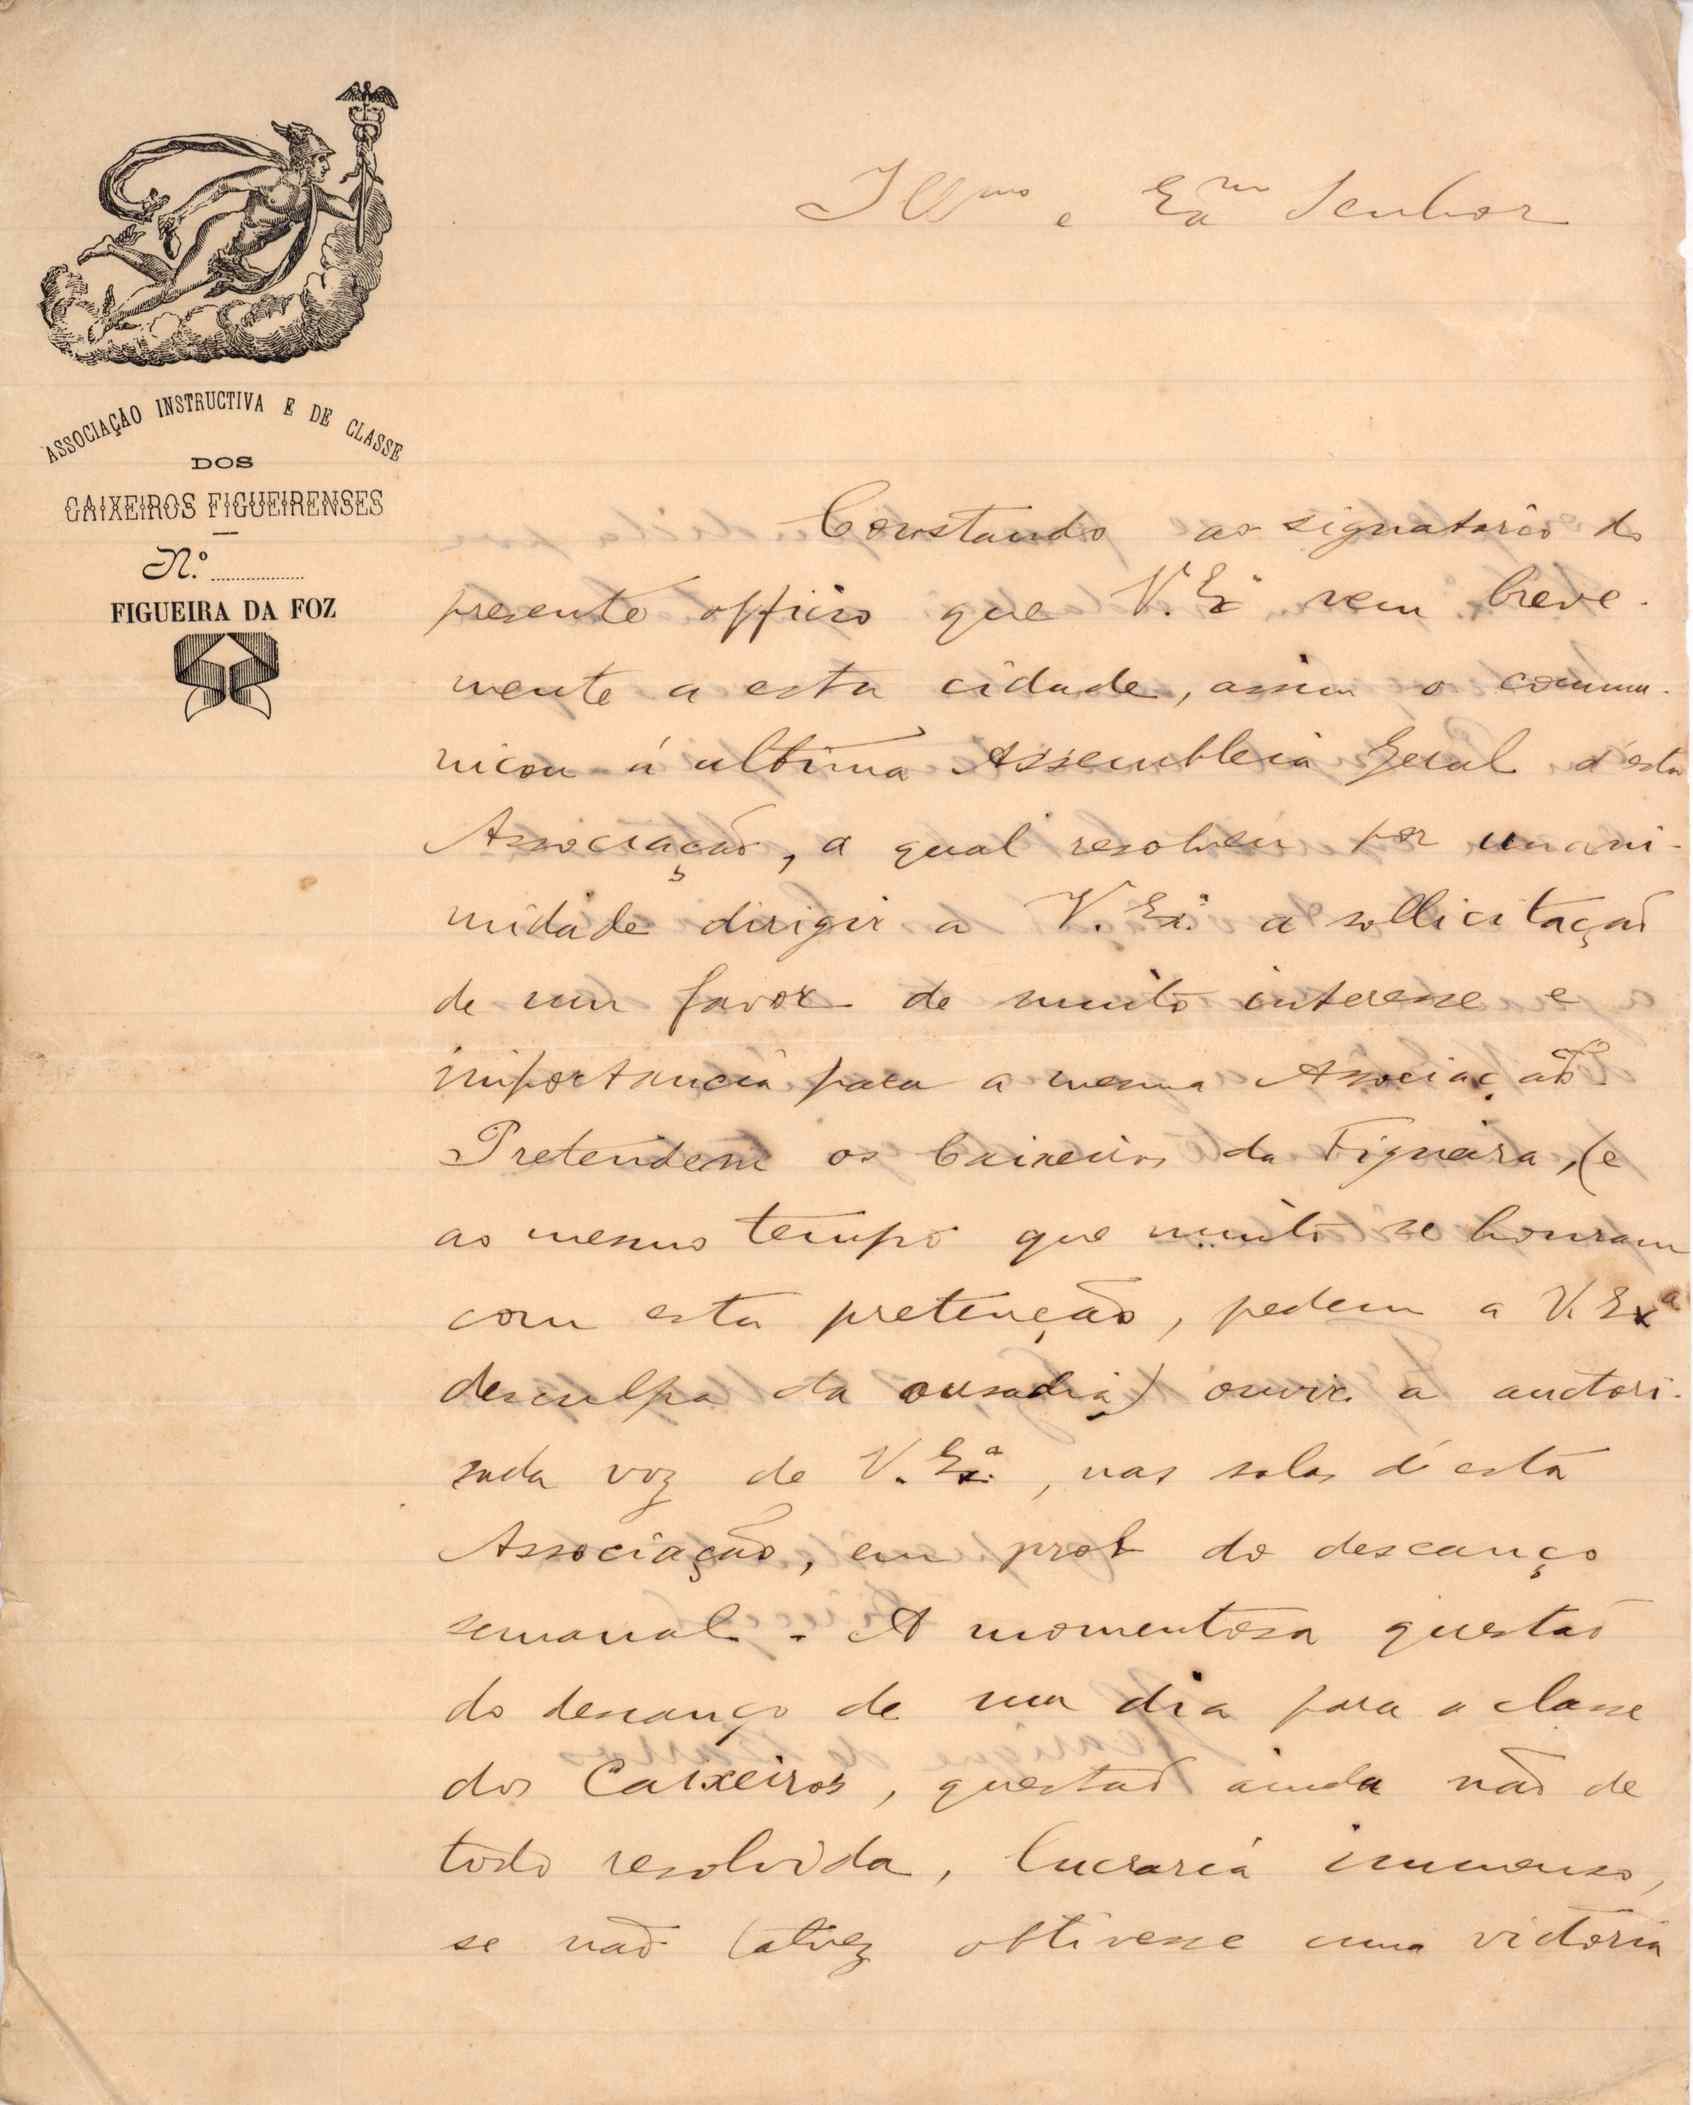 ASSOCIAÇÃO INSTRUCTIVA E DE CLASSE
DOS
CAIXEIROS FIGUEIRENSES
N.º
FIGUEIRA DA FOZ
Illmo e Exm Senhor
Constando ao signatario do
presente officio que V. Exª vem breve-
mente a esta cidade, assim o commu-
nicou á ultima Assembleia Geral d'esta
Associação, a qual resolveu por unani-
midade dirigir a V. Exª a sollicitação
de um favor de muito interesse e
importancia para a mesma Associação
Pretendem os Caixeiros da Figueira, (e
ao mesmo tempo que muito se honram
com esta pretenção, pedem a V. Exª
desculpa da ousadia) ouvir a auctori-
sada voz de V. Exª, nas salas d'esta
Associação, em prol do descanço
semanal. A momentosa questão
do descanço de um dia para a classe
dos Caixeiros, questão ainda não de
todo resolvida, lucraria immenso,
se não talvez obtivesse uma victoria